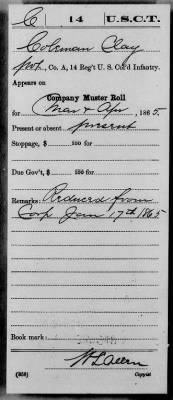 C 14 U.S.C.T.
Coleman Clay
Pvt., Co. A, 14 Reg't U. S. Col'd Infantry.
Appears on
Company Muster Roll
for Mar & Apr, 1865
Present or absent present
Stoppage, $ 100 for
Due Gov't, $ 100 for
Remarks: Reduced from
Corp Jan 17th 1865
Book mark:
(858) Copyist